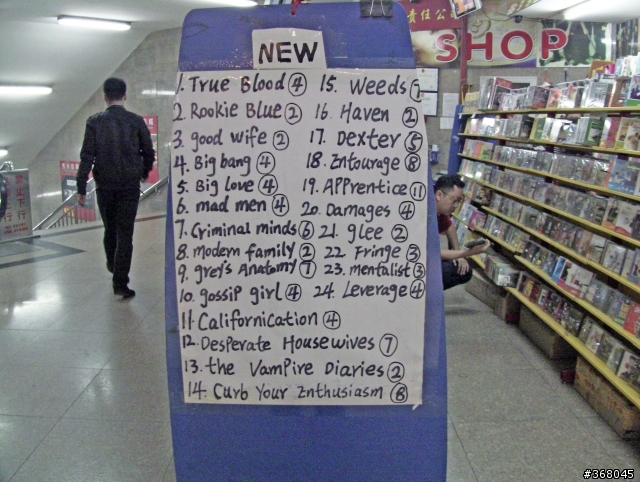 责任公
SHOP
NEW
1. True Blood ④
2. Rookie Blue ②
3. good wife ②
4. Big bang ④
5. Big love ④
6. mad men ④
7. Criminal minds ⑥
8. modern family ②
9. grey's Anatomy ⑦
10. gossip girl ④
11. Californication ④
12. Desperate Housewives ⑦
13. the Vampire Diaries ②
14. Curb Your Enthusiasm ⑧
15. Weeds ⑦
16. Haven ②
17. Dexter ⑤
18. Entourage ⑧
19. APPrentice ⑪
20. Damages ④
21. glee ②
22. Fringe ③
23. mentalist ③
24. Leverage ④
禁止下行
#368045